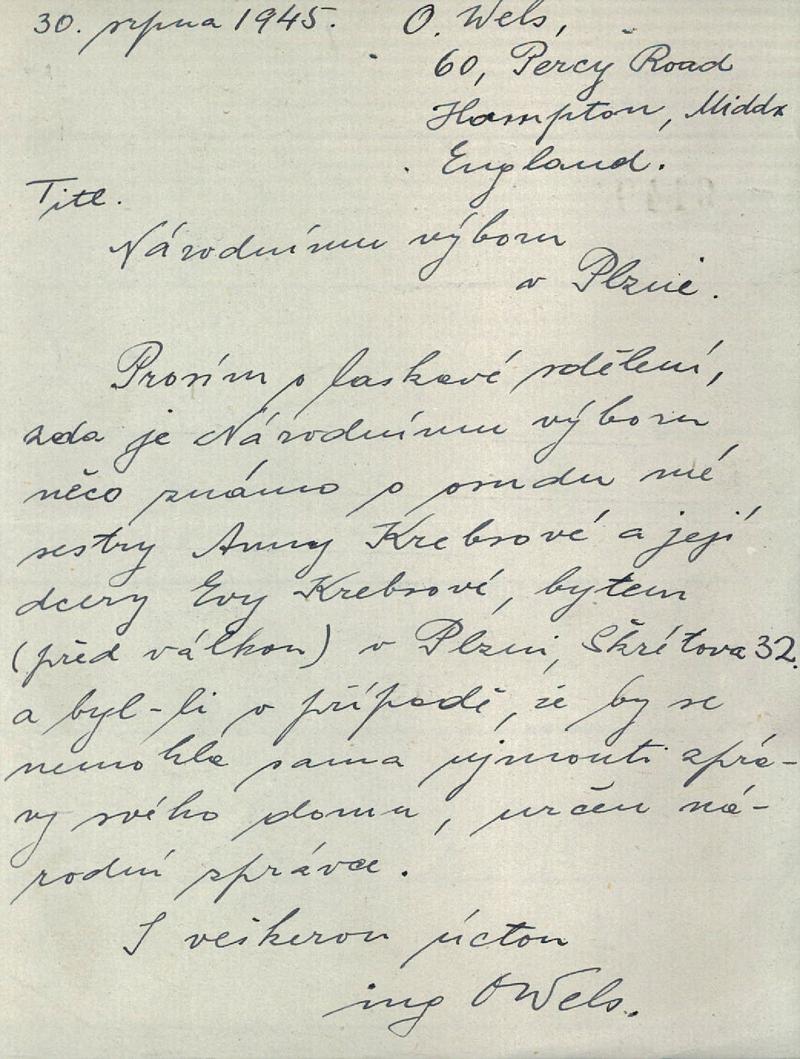 30. srpna 1945. O. Wels,
60, Percy Road
Hampton, Middx
England.
Titl.
Národnímu výboru
v Plzni.
Prosím o laskavé sdělení,
zda je Národnímu výboru
něco známo o osudu mé
sestry Anny Krebsové a její
dcery Evy Krebsové, bytem
(před válkou) v Plzni, Škrétova 32.
a byl-li v případě, že by se
nemohla sama ujmouti sprá-
vy svého domu, určen ná-
rodní správce.
S veškerou úctou
ing OWels.